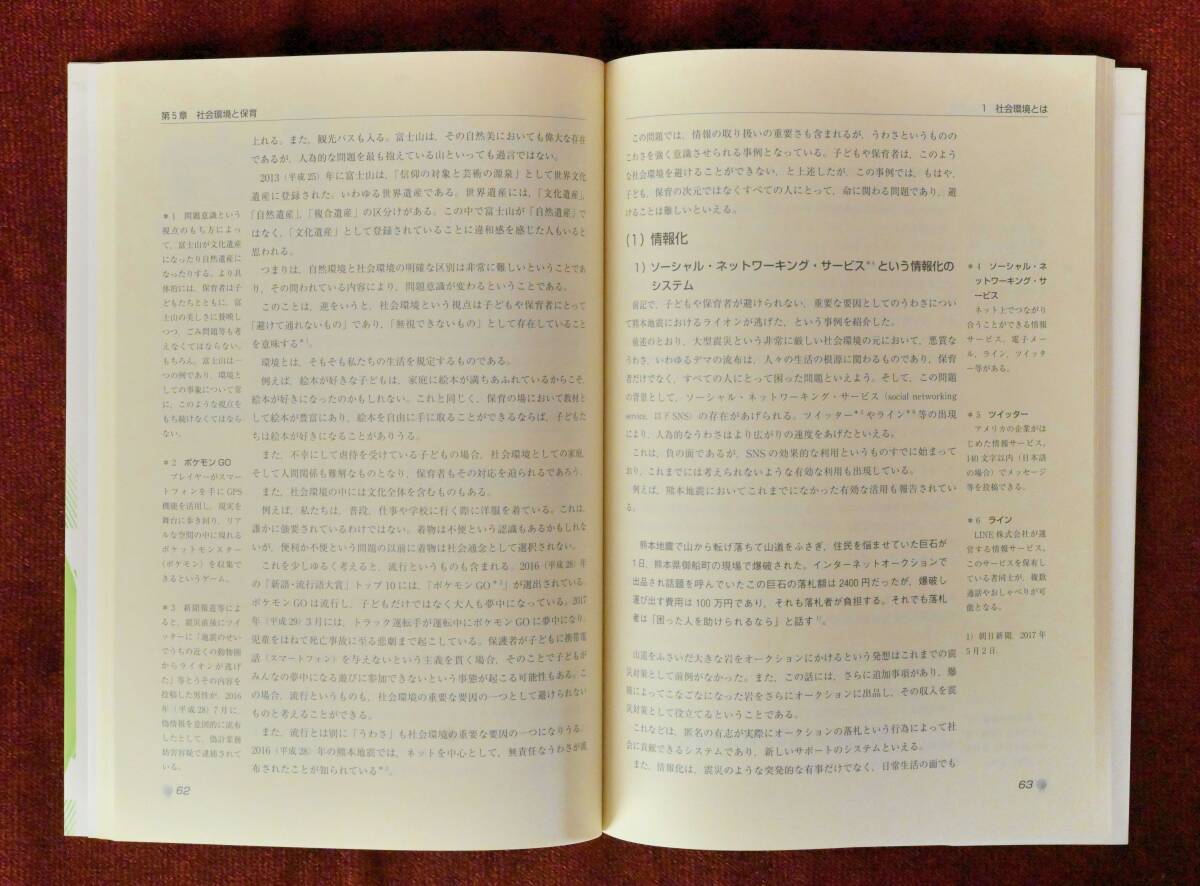 第5章 社会環境と保育
上れる。また，観光バスも入る。富士山は，その自然美においても偉大な存在
であるが，人為的な問題を最も抱えている山といっても過言ではない。
2013（平成25）年に富士山は，「信仰の対象と芸術の源泉」として世界文化
遺産に登録された。いわゆる世界遺産である。世界遺産には，「文化遺産」，
「自然遺産」，「複合遺産」の区分けがある。この中で富士山が「自然遺産」で
はなく，「文化遺産」として登録されていることに違和感を感じた人もいると
思われる。
つまりは，自然環境と社会環境の明確な区別は非常に難しいということであ
り，その問われている内容により，問題意識が変わるということである。
このことは，逆をいうと，社会環境という視点は子どもや保育者にとって
「避けて通れないもの」であり，「無視できないもの」として存在していること
を意味する*1。
環境とは，そもそも私たちの生活を規定するものである。
例えば，絵本が好きな子どもは，家庭に絵本が満ちあふれているからこそ，
絵本が好きになったのかもしれない。これと同じく，保育の場において教材と
して絵本が豊富にあり，絵本を自由に手に取ることができるならば，子どもた
ちは絵本が好きになることがありうる。
また，不幸にして虐待を受けている子どもの場合，社会環境としての家庭，
そして人間関係も難解なものとなり，保育者もその対応を迫られるであろう。
また，社会環境の中には文化全体を含むものもある。
例えば，私たちは，普段，仕事や学校に行く際に洋服を着ている。これは，
誰かに強要されているわけではない。着物は不便という認識もあるかもしれな
いが，便利か不便という問題の以前に着物は社会通念として選択されない。
これを少しゆるく考えると，流行というものも含まれる。2016（平成28）年
の「新語・流行語大賞」トップ10には，「ポケモンGO*2」が選出されている。
ポケモンGOは流行し，子どもだけではなく大人も夢中になっている。2017
年（平成29）3月には，トラック運転手が運転中にポケモンGOに夢中になり，
児童をはねて死亡事故に至る悲劇まで起こしている。保護者が子どもに携帯電
話（スマートフォン）を与えないという主義を貫く場合，そのことで子どもが
みんなの夢中になる遊びに参加できないという事態が起こる可能性もある。こ
の場合，流行というものも，社会環境の重要な要因の一つとして避けられない
ものと考えることができる。
また，流行とは別に「うわさ」も社会環境の重要な要因の一つになりうる。
2016（平成28）年の熊本地震では，ネットを中心として，無責任なうわさが流
布されたことが知られている*3。
*1 問題意識という
視点のもち方によっ
て，富士山が文化遺産
になったり自然遺産に
なったりする。より具
体的には，保育者は子
どもたちとともに，富
士山の美しさに賛嘆し
つつ，ごみ問題等も考
えなくてはならない。
もちろん，富士山は一
つの例であり，環境と
しての事象について常
に，このような視点を
もち続けなくてはなら
ない。
*2 ポケモンGO
プレイヤーがスマー
トフォンを手にGPS
機能を活用し，現実を
舞台に歩き回り，リア
ルな空間の中に現れる
ポケットモンスター
（ポケモン）を収集で
きるというゲーム。
*3 新聞報道等によ
ると，震災直後にツイ
ッターに「地震のせい
でうちの近くの動物園
からライオンが逃げ
た」等とうその内容を
投稿した男性が，2016
年（平成28）7月に，
偽情報を意図的に流布
したとして，偽計業務
妨害容疑で逮捕されて
いる。
62
1 社会環境とは
この問題では，情報の取り扱いの重要さも含まれるが，うわさというものの
こわさを強く意識させられる事例となっている。子どもや保育者は，このよう
な社会環境を避けることができない，と上述したが，この事例では，もはや，
子ども，保育の次元ではなくすべての人にとって，命に関わる問題であり，避
けることは難しいといえる。
(1) 情報化
1）ソーシャル・ネットワーキング・サービス*4という情報化の
システム
前記で，子どもや保育者が避けられない，重要な要因としてのうわさについ
て熊本地震におけるライオンが逃げた，という事例を紹介した。
前述のとおり，大型震災という非常に厳しい社会環境の元において，悪質な
うわさ，いわゆるデマの流布は，人々の生活の根源に関わるものであり，保育
者だけでなく，すべての人にとって困った問題といえよう。そして，この問題
の背景として，ソーシャル・ネットワーキング・サービス（social networking
service，以下SNS）の存在があげられる。ツイッター*5やライン*6等の出現
により，人為的なうわさはより広がりの速度をあげたといえる。
これは，負の面であるが，SNSの効果的な利用というものすでに始まって
おり，これまでには考えられないような有効な利用も出現している。
例えば，熊本地震においてこれまでになかった有効な活用も報告されてい
る。
熊本地震で山から転げ落ちて山道をふさぎ，住民を悩ませていた巨石が
1日，熊本県御船町の現場で爆破された。インターネットオークションで
出品され話題を呼んでいたこの巨石の落札額は2400円だったが，爆破し
運び出す費用は100万円であり，それも落札者が負担する。それでも落札
者は「困った人を助けられるなら」と話す1)。
山道をふさいだ大きな岩をオークションにかけるという発想はこれまでの震
災対策として前例がなかった。また，この話には，さらに追加事項があり，爆
破によってこなごなになった岩をさらにオークションに出品し，その収入を震
災対策として役立てるということである。
これなどは，匿名の有志が実際にオークションの落札という行為によって社
会に貢献できるシステムであり，新しいサポートのシステムといえる。
また，情報化は，震災のような突発的な有事だけでなく，日常生活の面でも
*4 ソーシャル・ネ
ットワーキング・サ
ービス
ネット上でつながり
合うことができる情報
サービス。電子メー
ル，ライン，ツイッタ
ー等がある。
*5 ツイッター
アメリカの企業がは
じめた情報サービス。
140文字以内（日本語
の場合）でメッセージ
等を投稿できる。
*6 ライン
LINE株式会社が運
営する情報サービス。
このサービスを保有し
ている者同士が，複数
通話やおしゃべりが可
能となる。
1）朝日新聞，2017年
5月2日．
63